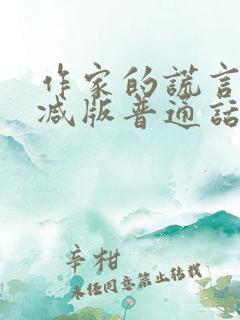 作家的谎言
减版普通话
辛柑
未经同意禁止转载